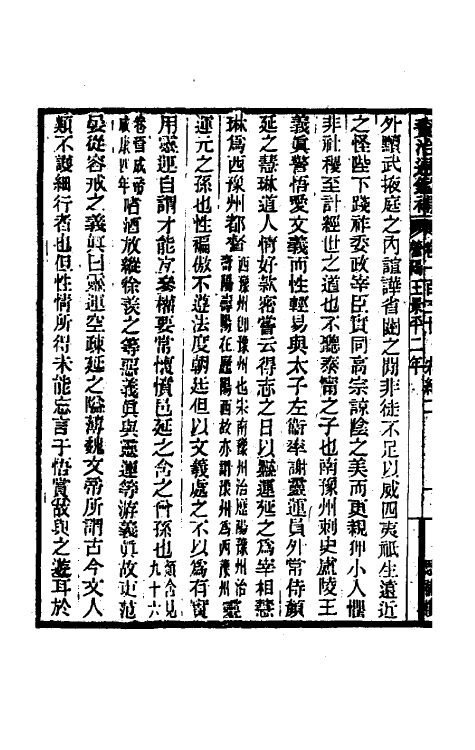 資治通鑑補 營陽王景平二年
外黷武掖庭之內諠譁省闥之閒非徒不足以威四夷祇生遠近
之怪陛下踐祚委政宰臣實同高宗諒陰之美而更親狎小人懼
非社稷至計經世之道也不聽泰甯之子也南豫州刺史廬陵王
義眞警悟愛文義而性輕易與太子左衞率謝靈運員外常侍顏
延之慧琳道人情好款密嘗云得志之日以靈運延之爲宰相慧
琳爲西豫州都督 靈
運元之孫也性褊傲不遵法度朝廷但以文義處之不以爲有實
用靈運自謂才能宜參權要常懷憤邑延之含之曾孫也顏含見九十六
卷晉成帝咸康四年嗜酒放縱徐羨之等惡義眞與靈運等游義眞故吏范
晏從容戒之義眞曰靈運空疎延之隘薄魏文帝所謂古今文人
類不護細行者也但性情所得未能忘言于悟賞故與之遊耳於